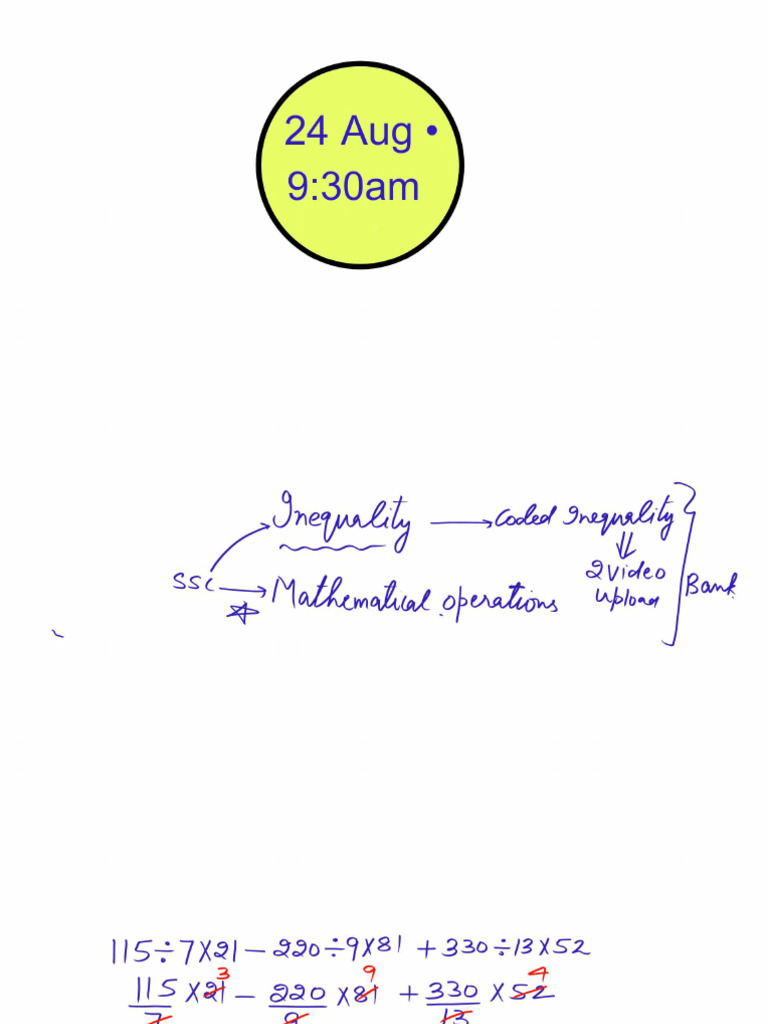 24 Aug •
9:30am
Inequality → Coded Inequality
SSC → Mathematical operations
2 video
upload
Bank
115÷7×21 – 220÷9×81 + 330÷13×52
3 9 4
115 ×21 – 220 ×81 + 330 ×52
7 9 13